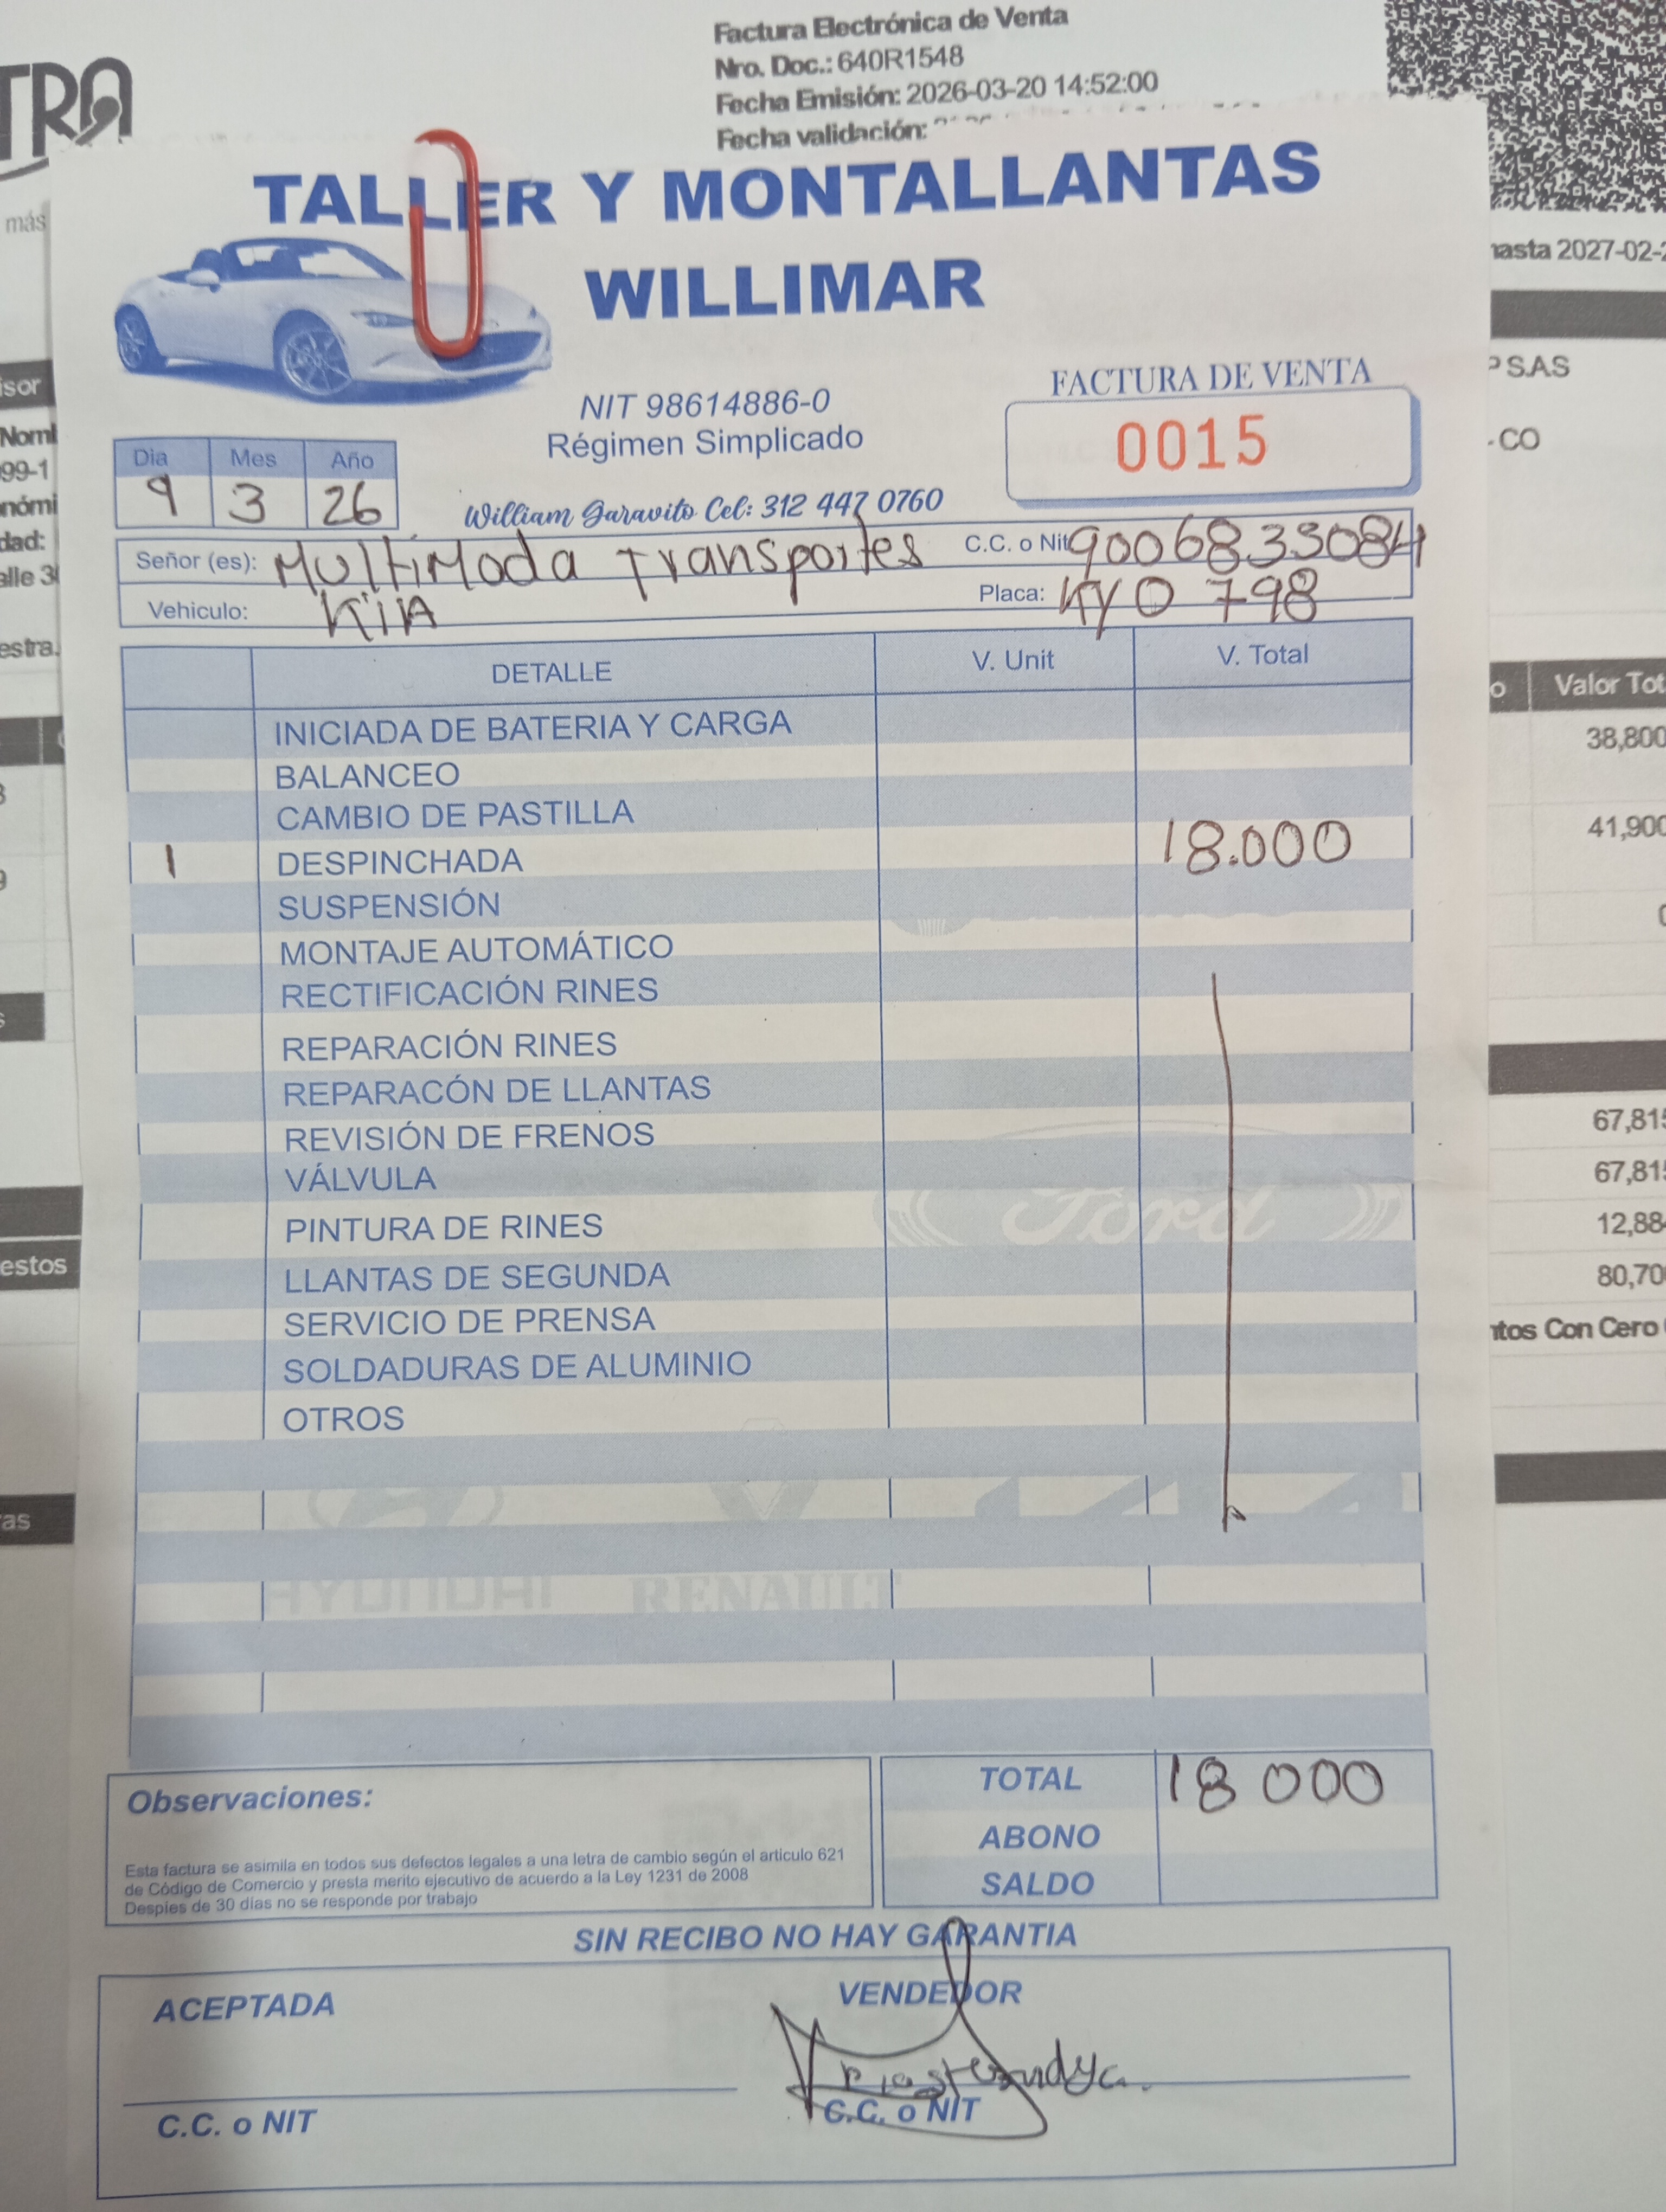 TRA
más
Factura Electrónica de Venta
Nro. Doc.: 640R1548
Fecha Emisión: 2026-03-20 14:52:00
Fecha validación:
hasta 2027-02-
TALLER Y MONTALLANTAS
WILLIMAR
NIT 98614886-0
Régimen Simplicado
William Garavito Cel: 312 447 0760
FACTURA DE VENTA
0015
Dia Mes Año
9 3 26
Señor (es): MultiModa Transportes C.C. o Nit 9006833084
Vehiculo: KIIA Placa: KYO 798
DETALLE V. Unit V. Total
INICIADA DE BATERIA Y CARGA
BALANCEO
CAMBIO DE PASTILLA
1 DESPINCHADA 18.000
SUSPENSIÓN
MONTAJE AUTOMÁTICO
RECTIFICACIÓN RINES
REPARACIÓN RINES
REPARACÓN DE LLANTAS
REVISIÓN DE FRENOS
VÁLVULA
PINTURA DE RINES
LLANTAS DE SEGUNDA
SERVICIO DE PRENSA
SOLDADURAS DE ALUMINIO
OTROS
Ford
HYUNDAI RENAULT
Observaciones:
Esta factura se asimila en todos sus defectos legales a una letra de cambio según el articulo 621
de Código de Comercio y presta merito ejecutivo de acuerdo a la Ley 1231 de 2008
Despies de 30 días no se responde por trabajo
TOTAL 18 000
ABONO
SALDO
SIN RECIBO NO HAY GARANTIA
ACEPTADA
VENDEDOR
C.C. o NIT
C.C. o NIT
isor
99-1
dad:
estra.
estos
as
SAS
CO
Valor Tot
38,800
41,900
67,815
67,81
12,88
80,70
ntos Con Cero